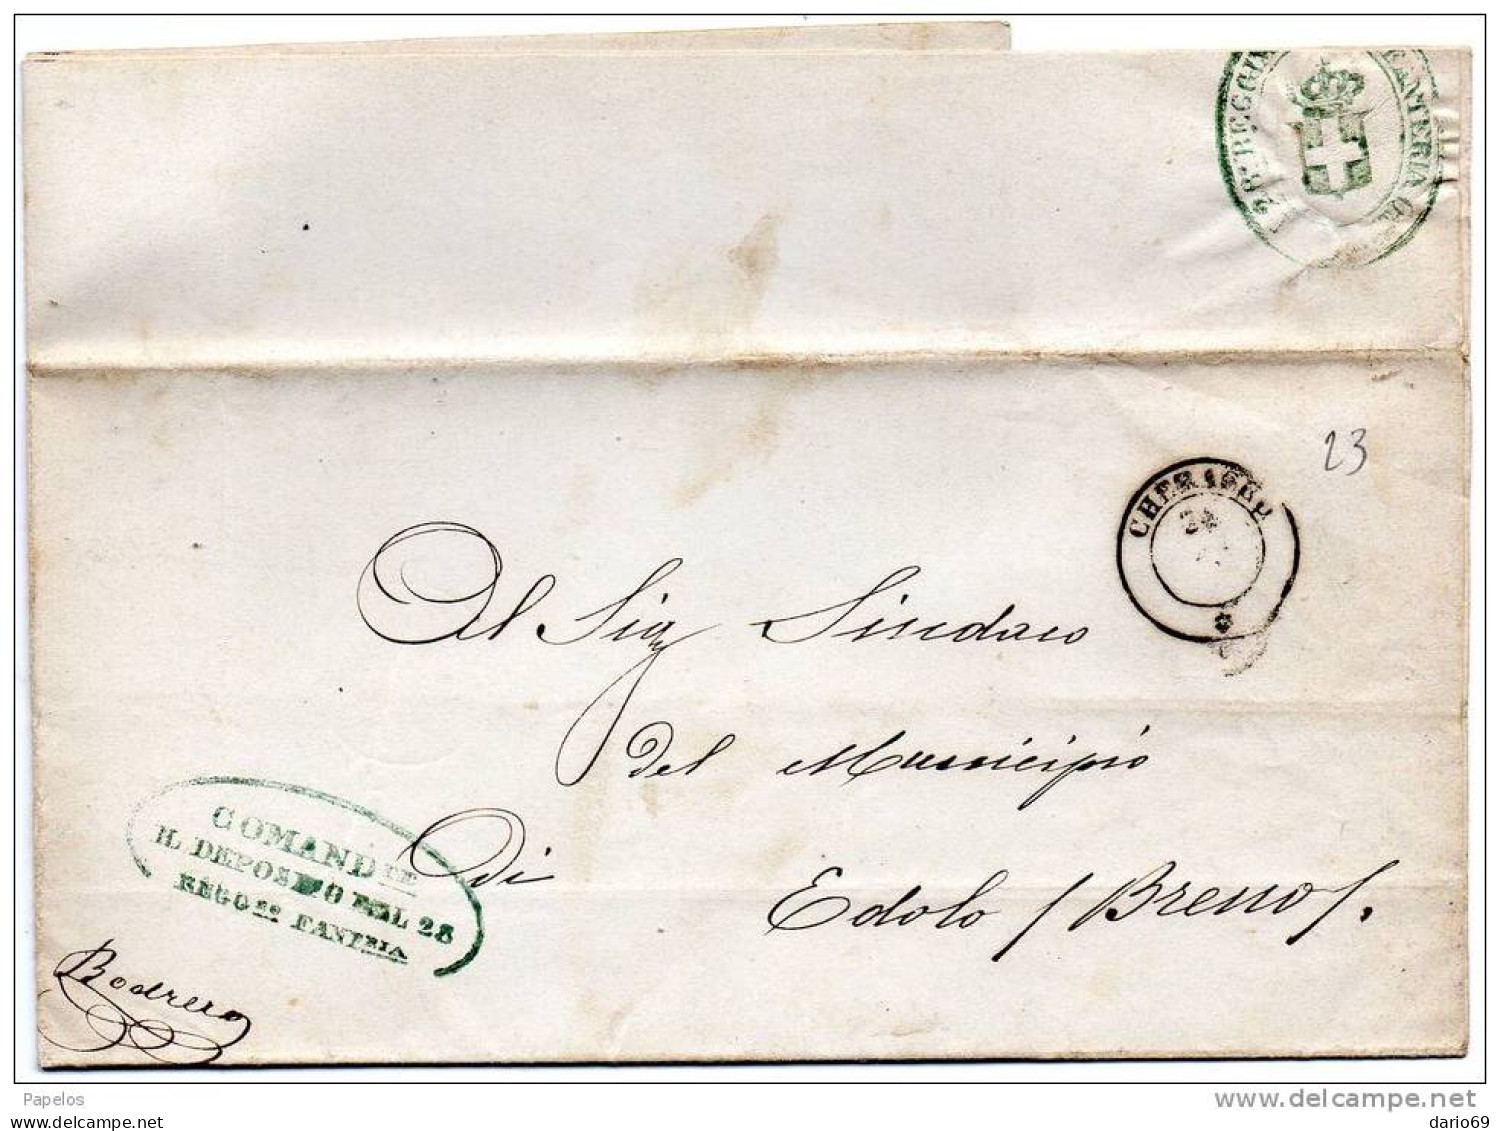 28º REGGIM
FANTERIA
23
CHERASCO
24
Al Sig. Sindaco
del Municipio
Di
Edolo / Breno /.
COMANDTE
IL DEPOSITO DEL 28
REGGto FANTRIA
Bodrero
Papelos
www.delcampe.net
http://www.papelos.it
dario69